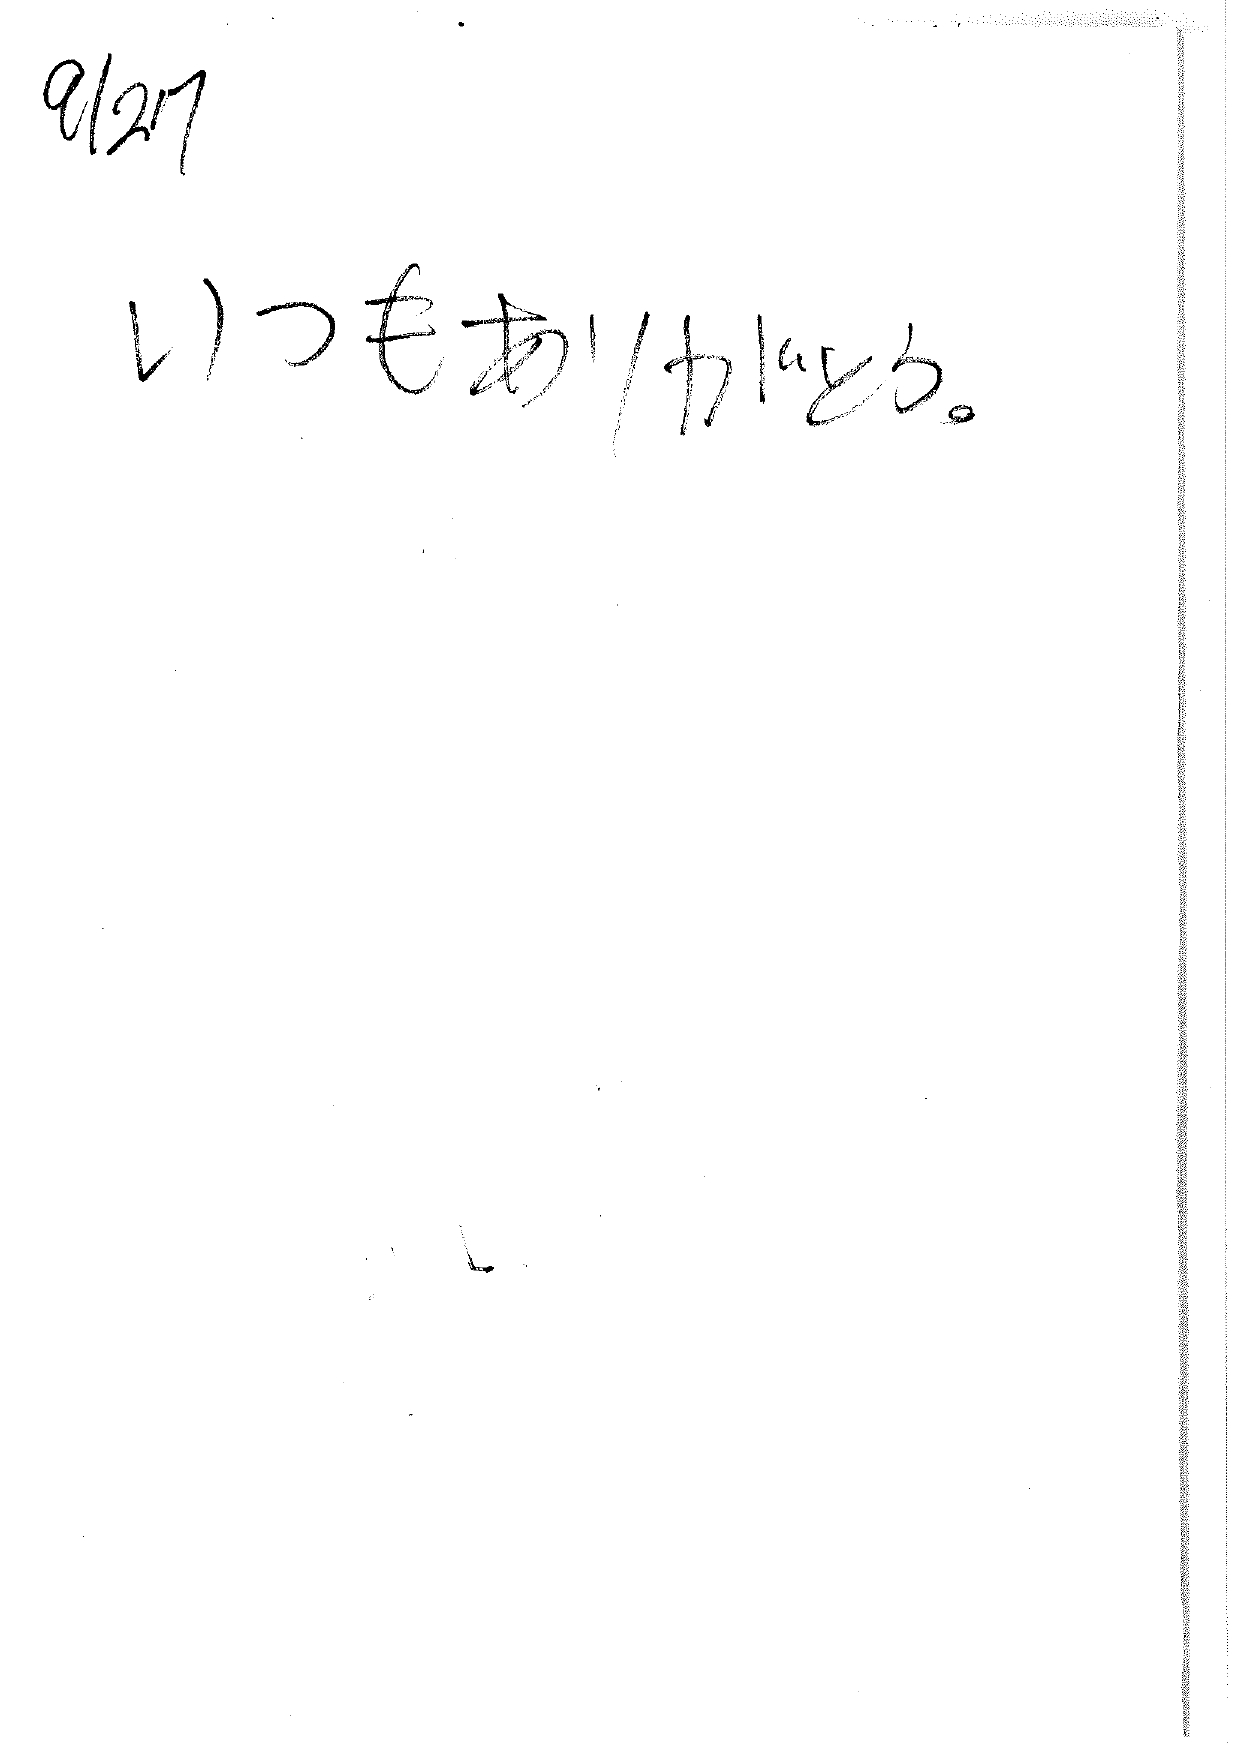 9/27
いつもありがとう。